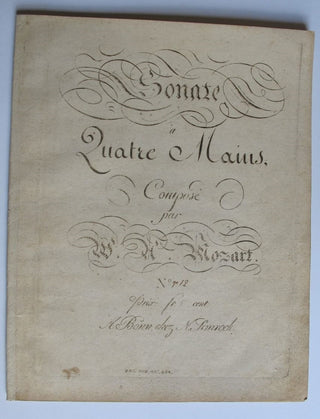 Sonate
à
Quatre Mains,
Composé
par
W. A. Mozart.
N° 
Prix fr. cent
A Bonn chez N. Simrock.